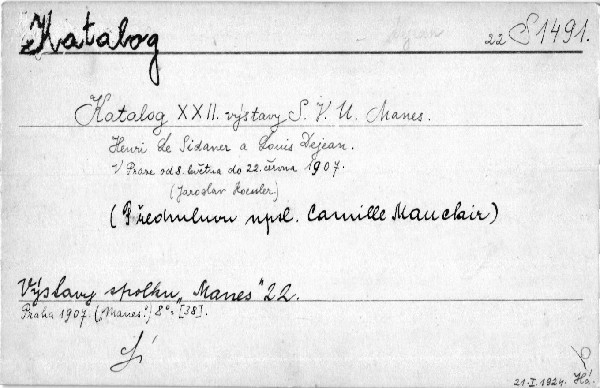 Katalog 22 S 1491.
Katalog XXII. výstavy S. V. U. Manes.
Henri Le Sidaner a Louis Dejean.
V Praze od 8. května do 22. června 1907.
(Jaroslav Roessler)
(Předmluvu npsl. Camille Mauclair)
Výstavy spolku „Manes" 22.
Praha 1907. („Manes".) 8°. [38].
21.I.1924. Há.